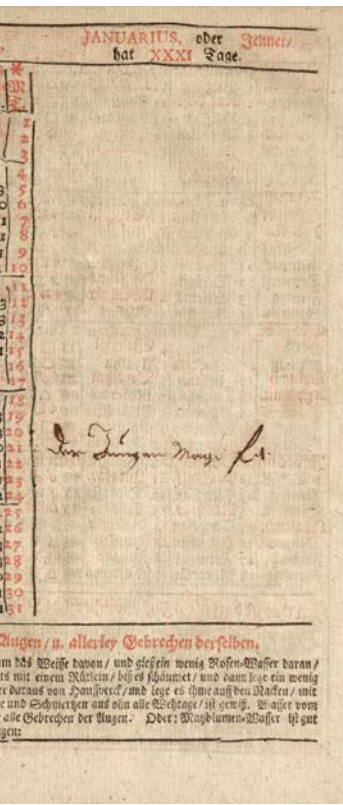 JANUARIUS, oder Jenner/
hat XXXI Tage.
M
T
1
2
3
4
5
6
7
8
9
10
11
12
13
14
15
16
17
18
19
20
21
22
23
24
25
26
27
28
29
30
31
Der Jungen Magd
Augen / u. allerley Gebrechen derselben.
um das Weisse davon / und gieß ein wenig Rosen-Wasser daran /
ts mit einem Rütlein / biß es schäumet / und dann lege ein wenig
er daraus von Hanffwerck / und lege es ihme auff den Nacken / mit
e und Schmertzen aus ohn alle Wehtage / ist gewiß. Wasser vom
alle Gebrechen der Augen. Oder: Mayblumen-Wasser ist gut
gen: